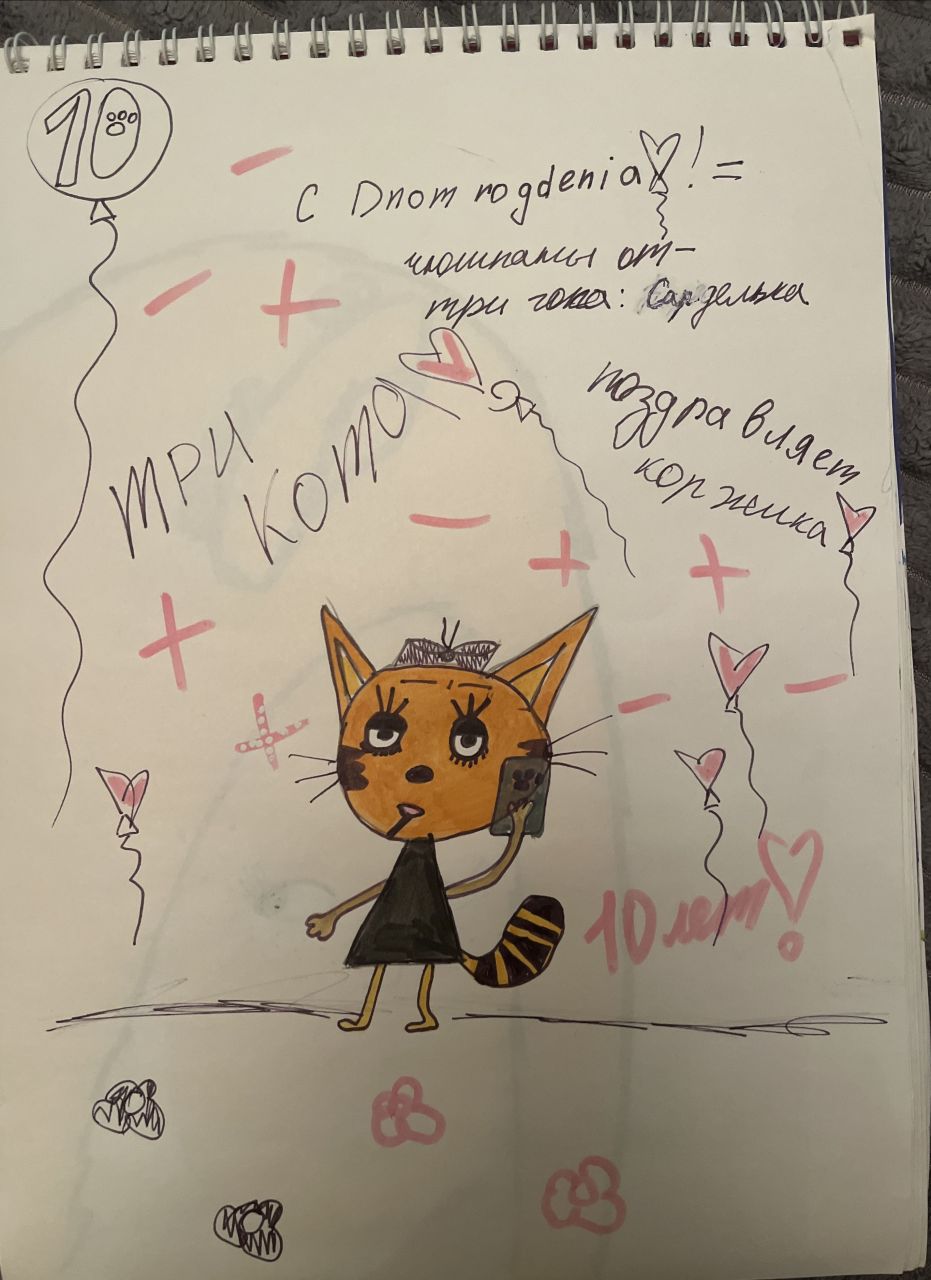 10
С Dnom rogdenia! =
от-
три года: Сарделька
поздравляет
коржика
ТРИ
КОТА
10 лет!